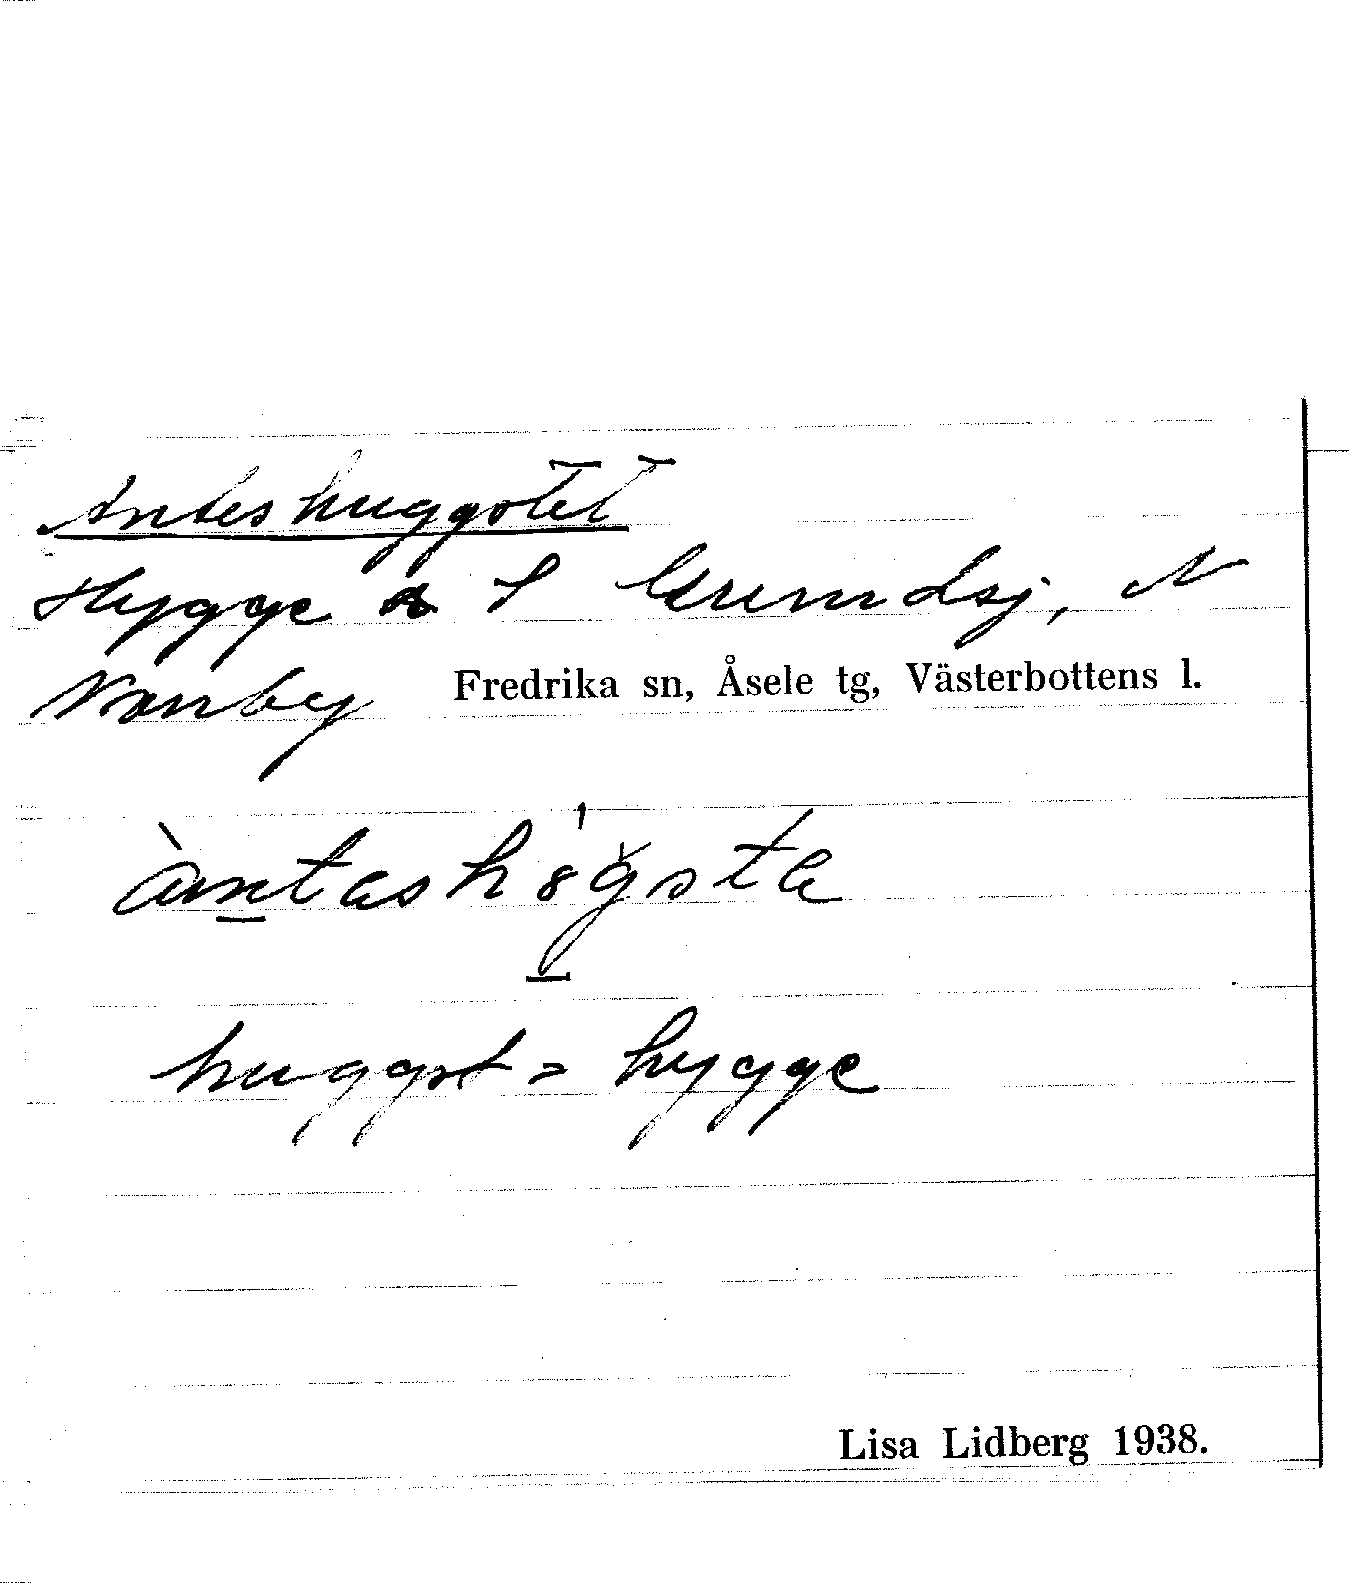 Anteshuggotet
Hygge S Grundsj, N
Norrby Fredrika sn, Åsele tg, Västerbottens l.
huggot = hygge
Lisa Lidberg 1938.